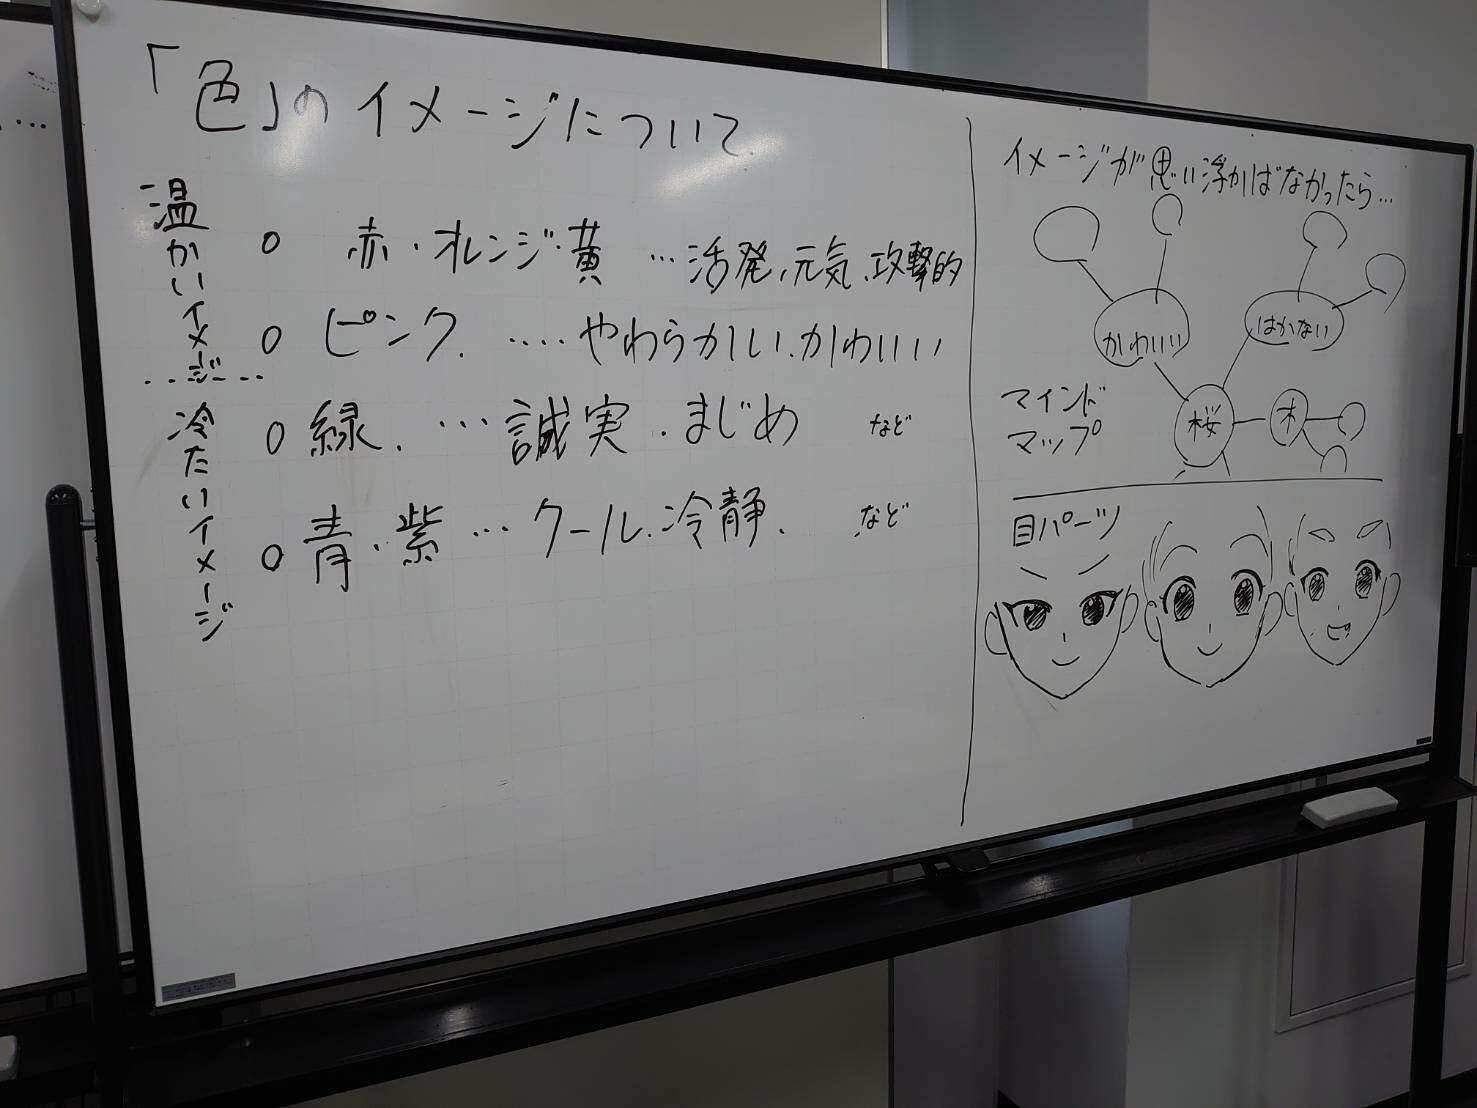 「色」のイメージについて
温かいイメージ
○ 赤・オレンジ・黄 …活発、元気、攻撃的
○ ピンク. ‥‥やわらかい、かわいい
冷たいイメージ
○ 緑. …誠実.まじめ など
○ 青・紫…クール.冷静. など
イメージが思い浮かばなかったら…
かわいい
はかない
マインド
マップ
桜
木
目パーツ